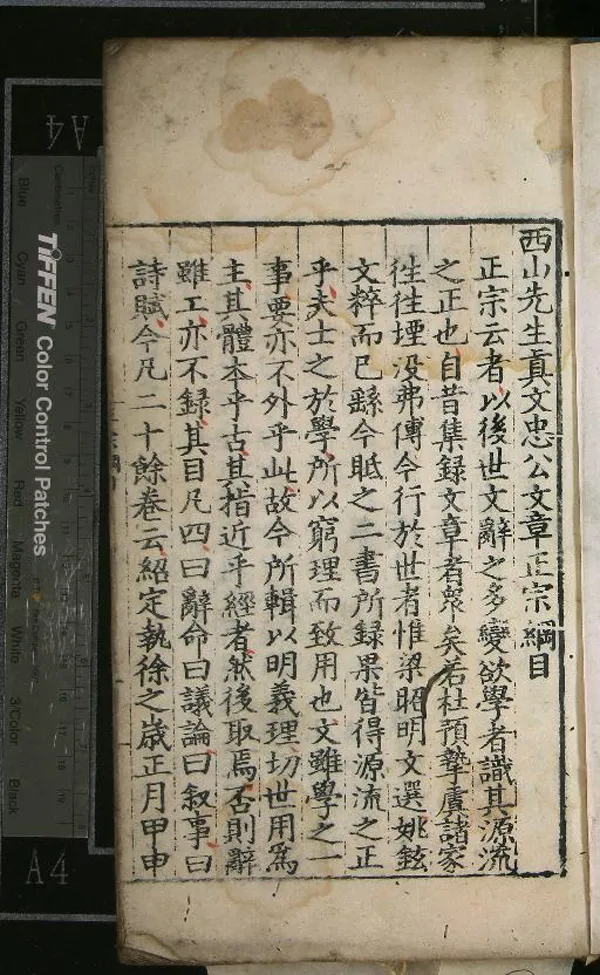 西山先生真文忠公文章正宗綱目
正宗云者以後世文辭之多變欲學者識其源流
之正也自昔集録文章者衆矣若杜預摯虞諸家
徃徃堙没弗傳今行於世者惟梁昭明文選姚鉉
文粹而已繇今眡之二書所録果皆得源流之正
乎夫士之於學所以窮理而致用也文雖學之一
事要亦不外乎此故今所輯以明義理切世用爲
主其體本乎古其指近乎經者然後取焉否則辭
雖工亦不録其目凡四曰辭命曰議論曰叙事曰
詩賦今凡二十餘卷云紹定執徐之歳正月甲申
TIFFEN Color Control Patches
Blue
Cyan
Green
Yellow
Red
Magenta
White
3/Color
Black
Centimetres
A4
A4